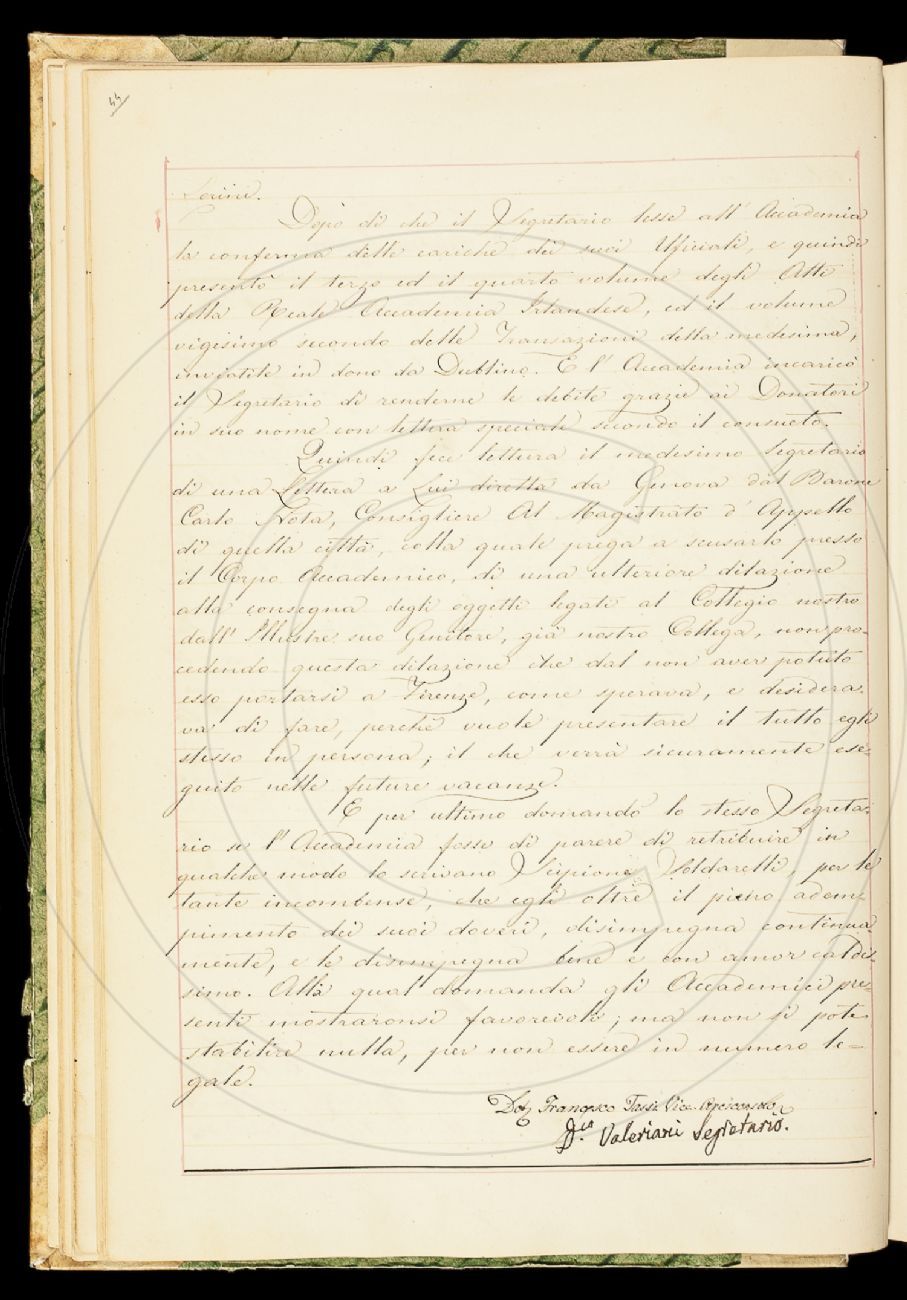 44
Serini.
Dopo di che il Segretario lesse all' Accademia
la conferma delle cariche dei suoi Ufficiali, e quindi
presentò il terzo ed il quarto volume degli Atti
della Reale Accademia Irlandese, ed il volume
vigesimo secondo delle Transazioni della medesima,
inviatile in dono da Dublino. E l' Accademia incaricò
il Segretario di renderne le debite grazie ai Donatori
in suo nome con lettera speciale secondo il consueto.
Quindi fece lettura il medesimo Segretario
di una Lettera a Lui diretta da Genova dal Barone
Carlo Nota, Consigliere Al Magistrato d' Appello
di quella città, colla quale prega a scusarlo presso
il Corpo Accademico, di una ulteriore dilazione
alla consegna degli oggetti legati al Collegio nostro
dall' Illustre suo Genitore, già nostro Collega, non pro-
cedendo questa dilazione che dal non aver potuto
esso portarsi a Firenze, come sperava, e desidera-
va di fare, perchè vuole presentare il tutto egli
stesso in persona; il che verrà sicuramente ese-
guito nelle future vacanze.
E per ultimo domandò lo stesso Segreta-
rio se l' Accademia fosse di parere di retribuire in
qualche modo lo scrivano Scipione Soldarelli, per le
tante incombense, che egli oltre il pieno adem-
pimento dei suoi doveri, disimpegna continua-
mente, e le disimpegna bene e con amor caldis-
simo. Alla qual domanda gli Accademici pre-
senti mostraronsi favorevoli; ma non si potè
stabilire nulla, per non essere in numero le=
gale.
Dott Francesco Tassi Vice-Arciconsolo
Valeriani Segretario.